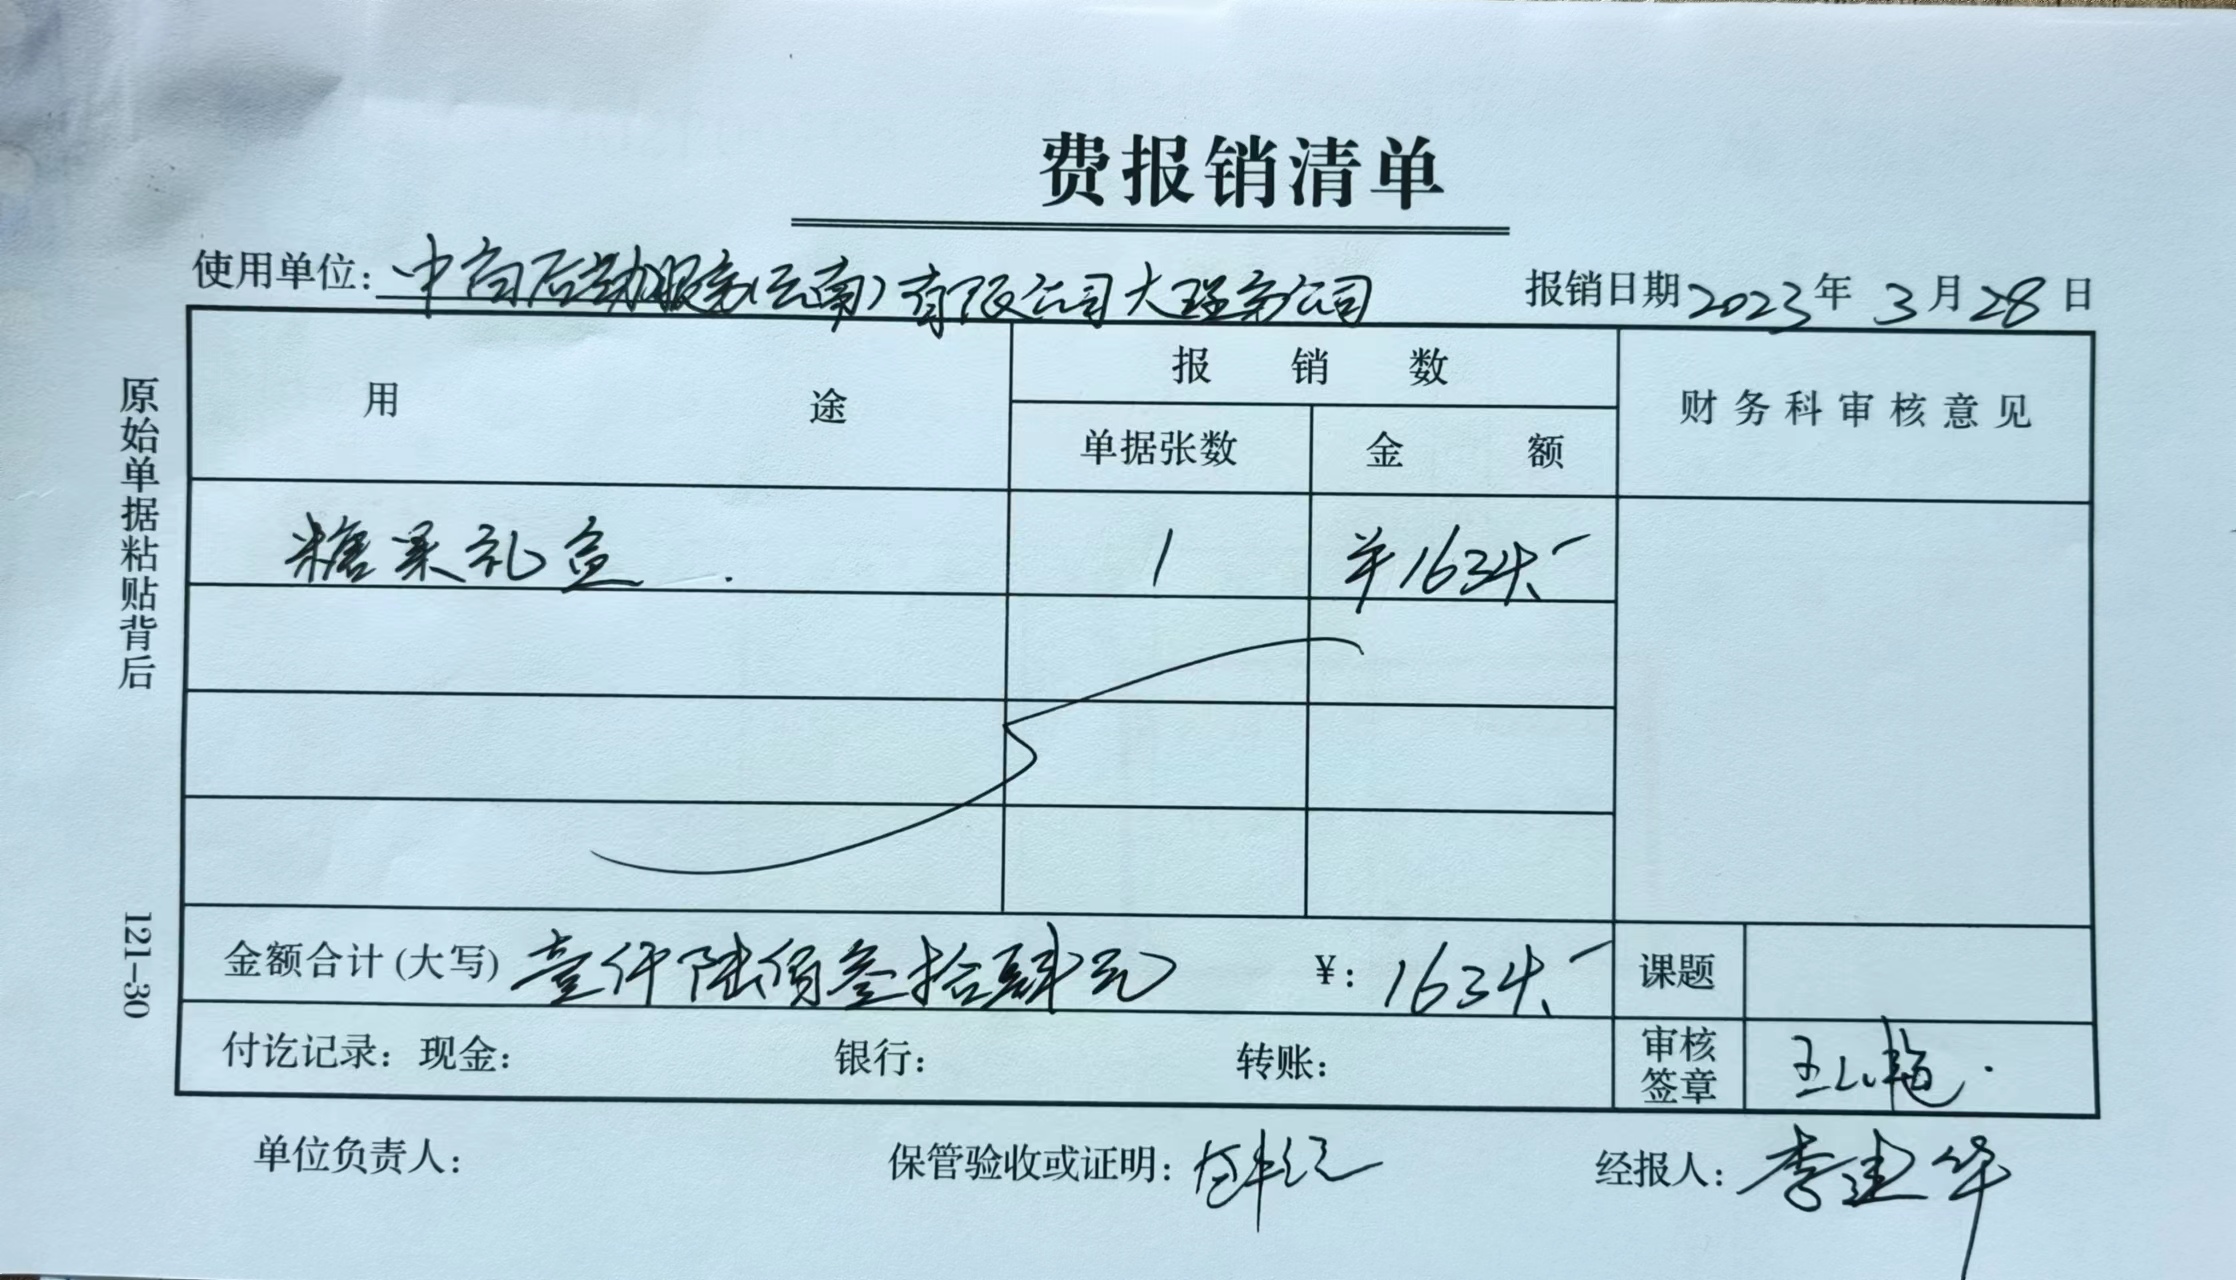 费报销清单
使用单位: 中向后勤服务(云南)有限公司大理分公司 报销日期 2023 年 3 月 28 日
用途 报销数 财务科审核意见
单据张数 金额
糖果礼盒 1 ¥1634.-
金额合计(大写) 壹仟陆佰叁拾肆元 ¥: 1634.- 课题
付讫记录: 现金: 银行: 转账: 审核签章
单位负责人: 保管验收或证明: 经报人: 李建华
原始单据粘贴背后
121-30